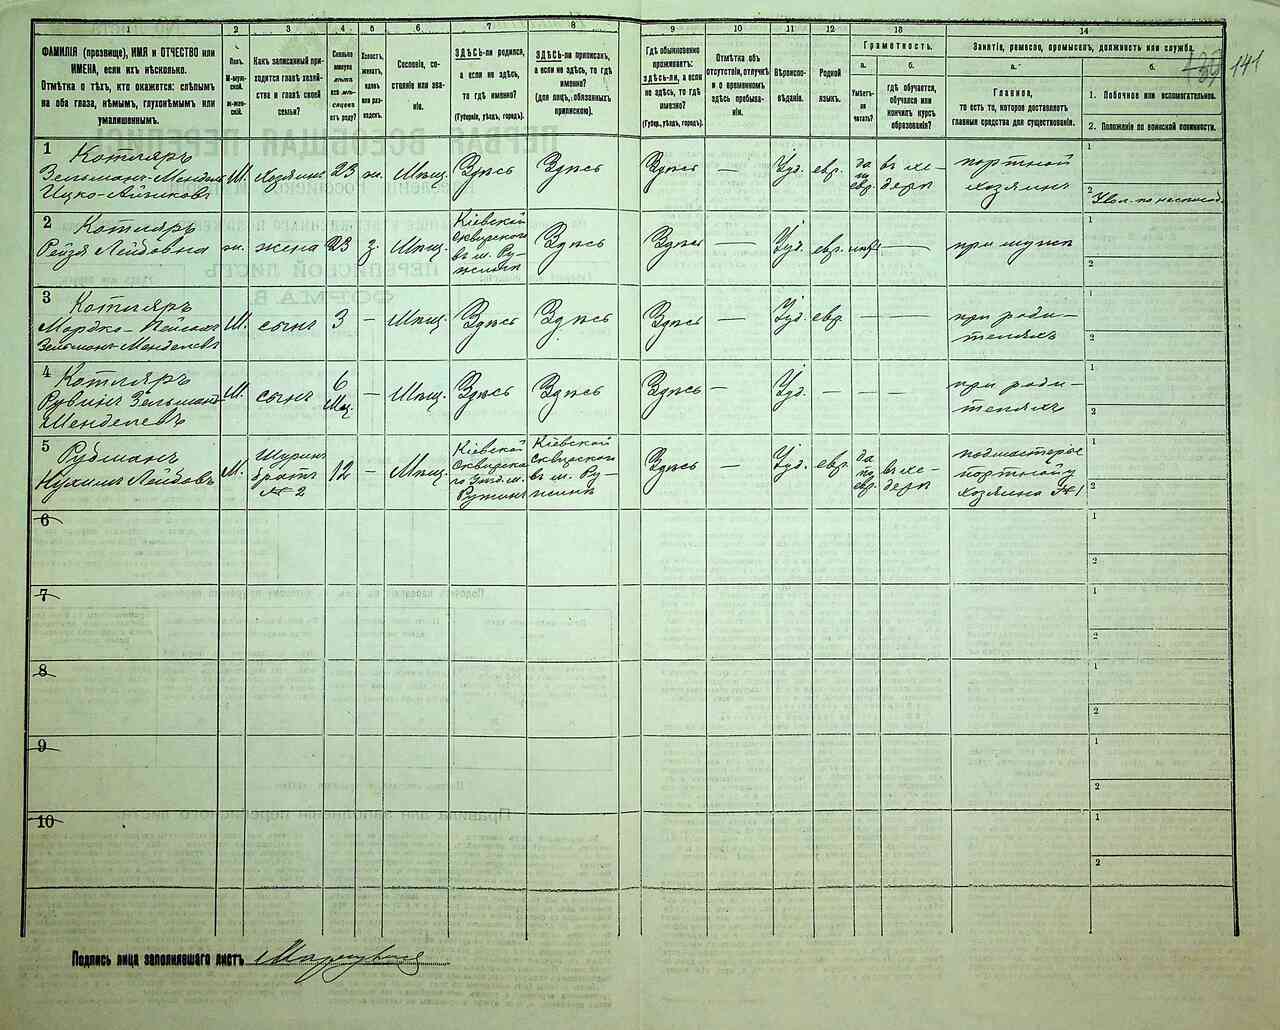 139 141
1 2 3 4 5 6 7 8 9 10 11 12 13 14
ФАМИЛІЯ (прозвище), ИМЯ и ОТЧЕСТВО или
ИМЕНА, если ихъ нѣсколько.
Отмѣтка о тѣхъ, кто окажется: слѣпымъ
на оба глаза, нѣмымъ, глухонѣмымъ или
умалишеннымъ.
Полъ.
М-муж-
ской.
Ж-жен-
скій.
Какъ записанный при-
ходится главѣ хозяй-
ства и главѣ своей
семьи?
Сколько
минуло
лѣтъ
или мѣ-
сяцевъ
отъ роду?
Холостъ,
женатъ,
вдовъ
или раз-
веденъ.
Сословіе, со-
стояніе или зва-
ніе.
ЗДѢСЬ-ли родился,
а если не здѣсь,
то гдѣ именно?
(Губернія, уѣздъ, городъ).
ЗДѢСЬ-ли приписанъ,
а если не здѣсь, то гдѣ
именно?
(для лицъ, обязанныхъ
припиской).
Гдѣ обыкновенно
проживаетъ:
ЗДѢСЬ-ли, а если
не здѣсь, то гдѣ
именно?
(Губер., уѣздъ, городъ).
Отмѣтка объ
отсутствіи, отлучкѣ
и о временномъ
здѣсь пребыва-
ніи.
Вѣроиспо-
вѣданіе.
Родной
языкъ.
Грамотность.
а.
Умѣетъ-ли
читать?
б.
Гдѣ обучается,
обучался или
кончилъ курсъ
образованія?
Занятіе, ремесло, промыселъ, должность или служба.
а.
Главное,
то есть то, которое доставляетъ
главныя средства для существованія.
б.
1. Побочное или вспомогательное.
2. Положеніе по воинской повинности.
1
Котляръ
Зельманъ-Мендель
Ицко-Айзиковъ
М. Хозяинъ 23 ж. Мѣщ. Здѣсь Здѣсь Здѣсь — Іуд. евр.
да
по
евр.
въ хе-
дерѣ
портной
хозяинъ
1
2
2
Котляръ
Рейзя Лейбовна
ж. жена 23 з. Мѣщ.
Кіевской
Сквирского
въ м. Ру-
жинѣ
Здѣсь Здѣсь — Іуд. евр. нѣтъ —
при мужѣ
1
2
3
Котляръ
Мордко-Пейсахъ
Зельманъ-Менделевъ
М. сынъ 3 — Мѣщ. Здѣсь Здѣсь Здѣсь — Іуд. евр. — —
при роди-
теляхъ
1
2
4
Котляръ
Рувинъ Зельманъ-
Менделевъ
М. сынъ
6
Мѣс.
— Мѣщ. Здѣсь Здѣсь Здѣсь — Іуд. — — —
при роди-
теляхъ
1
2
5
Рубманъ
Нухимъ Лейбовъ
М.
Шуринъ
братъ
№ 2
12 — Мѣщ.
Кіевской
Сквирска-
го уѣзд. м.
Ружинѣ
Кіевской
Сквирского
въ м. Ру-
жинѣ
Здѣсь — Іуд. евр.
да
по
евр.
въ хе-
дерѣ
подмастерье
портной у
хозяина № 1
1
2
6
1
2
7
1
2
8
1
2
9
1
2
10
1
2
Подпись лица заполнявшаго листъ